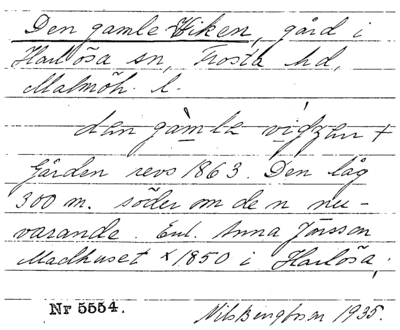 Den gamle Viken, gård i
Harlösa sn, Frosta hd,
Malmöh. l.
dan gàmla vigzan +
Gården revs 1863. Den låg
300 m. söder om den nu-
varande. Enl. Anna Jönsson
Madhuset * 1850 i Harlösa.
Nr 5554. Nils Bengtsson 1935.